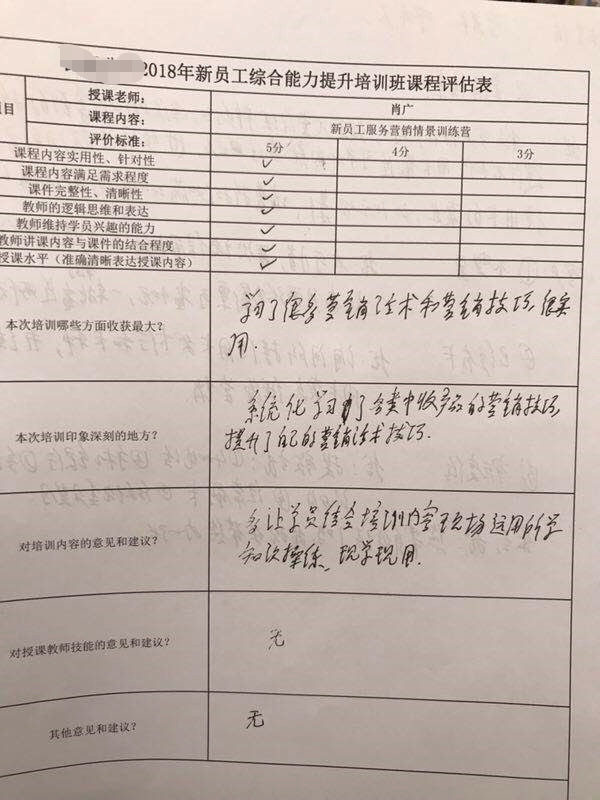 2018年新员工综合能力提升培训班课程评估表
项目
授课老师： 肖广
课程内容： 新员工服务营销情景训练营
评价标准： 5分 4分 3分
课程内容实用性、针对性 ✓
课程内容满足需求程度 ✓
课件完整性、清晰性 ✓
教师的逻辑思维和表达 ✓
教师维持学员兴趣的能力 ✓
教师讲课内容与课件的结合程度 ✓
授课水平（准确清晰表达授课内容） ✓
本次培训哪些方面收获最大？
学习了很多营销话术和营销技巧，很实
用．
本次培训印象深刻的地方？
系统化学习了各类中收产品的营销技巧，
提升了自己的营销话术技巧．
对培训内容的意见和建议？
多让学员结合培训内容现场运用所学
知识操练，现学现用．
对授课教师技能的意见和建议？
无
其他意见和建议？
无